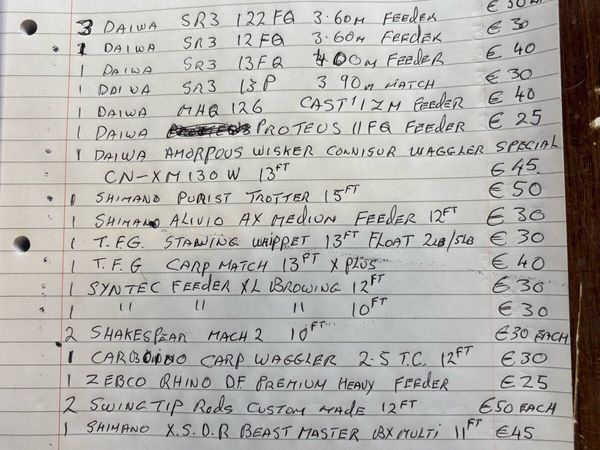 3 DAIWA SR3 122FQ 3.60M FEEDER € 30
1 DAIWA SR3 12FQ 3.60M FEEDER € 30
1 DAIWA SR3 13FQ 400M FEEDER € 40
1 DAIWA SR3 13P 3 90M MATCH € 30
1 DAIWA MHQ 12G CAST'IZM FEEDER € 40
1 DAIWA PROTEUS 11FQ FEEDER € 25
1 DAIWA AMORPOUS WISKER CONNISUR WAGGLER SPECIAL
CN-XM130W 13FT € 45.
1 SHIMANO PURIST TROTTER 15FT € 50
1 SHIMANO ALIVIO AX MEDIUN FEEDER 12FT € 30
1 T.FG. STANNING WHIPPET 13FT FLOAT 2LB/5LB € 30
1 T.F.G CARP MATCH 13FT X PLUS € 40
1 SYNTEC FEEDER XL BROWING 12FT € 30
1 " " " 10FT € 30
2 SHAKESPEAR MACH 2 10FT €30 EACH
1 CARP WAGGLER 2.5 T.C. 12FT € 30
1 ZEBCO RHINO DF PREMIUM HEAVY FEEDER € 25
2 SWING TIP RODS CUSTOM MADE 12FT €50 EACH
1 SHIMANO X.S.D.R BEAST MASTER BX MULTI 11FT €45